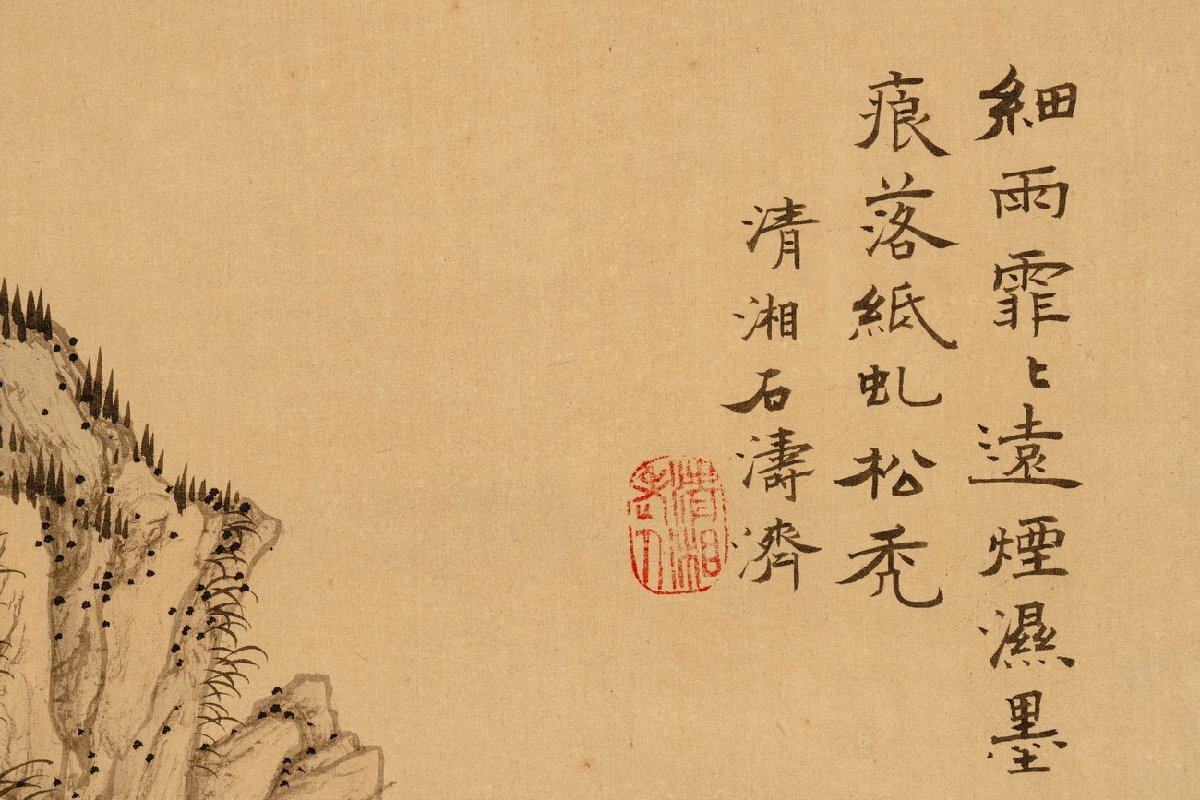 細雨霏〻遠煙濕墨
痕落紙虬松禿
清湘石濤濟
清湘
老人